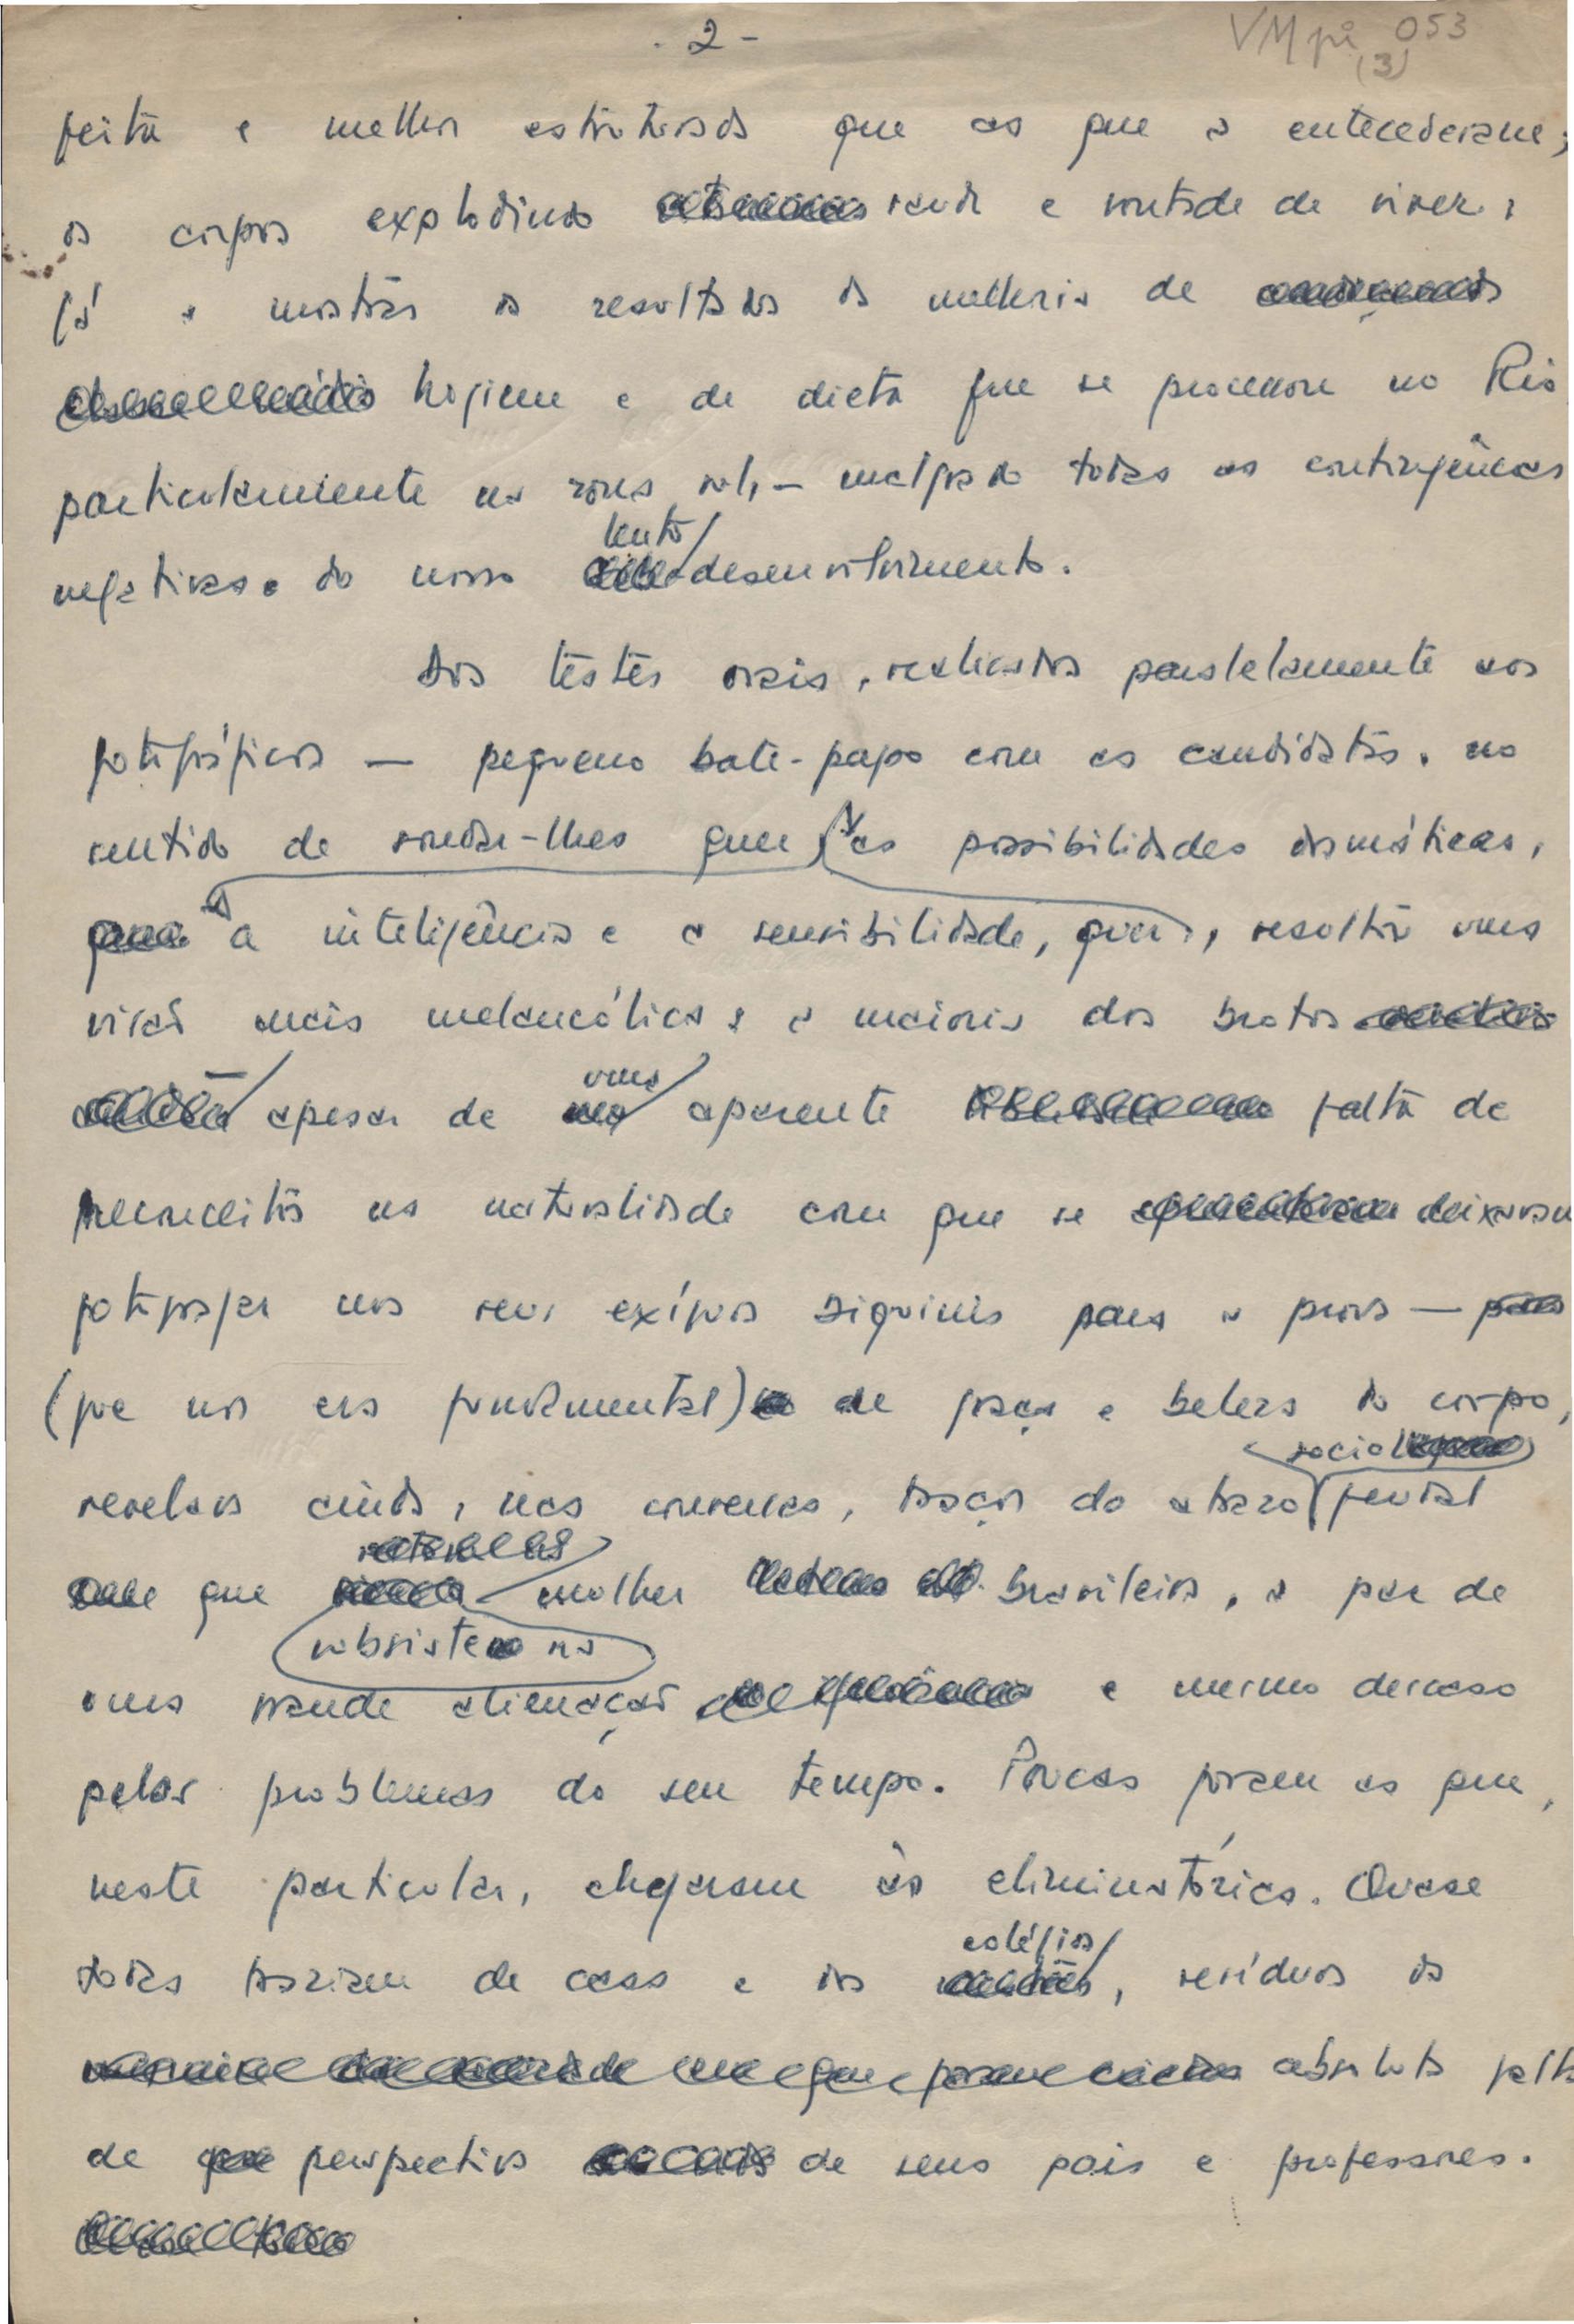 - 2 -
VMpi 053
(3)
feita e melhor estruturada que as que a antecederam;
os corpos explodindo saúde e vontade de viver,
já a mostrar os resultados da melhoria de
higiene e de dieta que se processou no Rio
particularmente na zona sul, - malgrado todas as contingências
negativas do nosso desenvolvimento.
lento
Dos testes orais, realizados paralelamente aos
fotográficos — pequeno bate-papo com as candidatas, no
sentido de sondar-lhes quer as possibilidades dramáticas,
a inteligência e a sensibilidade, quer, resultou uma
visão mais melancólica: a maioria dos brotos
apesar de uma aparente falta de
preconceitos na naturalidade com que se deixavam
fotografar nos seus exíguos biquinis para a prova —
(que nos era fundamental) de graça e beleza do corpo,
revelava ainda, nas conversas, traços do atraso social
feudal
que mulher brasileira, a par de
subsiste na
uma grande alienação e mesmo descaso
pelos problemas do seu tempo. Poucas foram as que,
neste particular, chegaram às eliminatórias. Quase
todas traziam de casa e dos colégios, resíduos da
absoluta falta
de perspectiva de seus pais e professores.